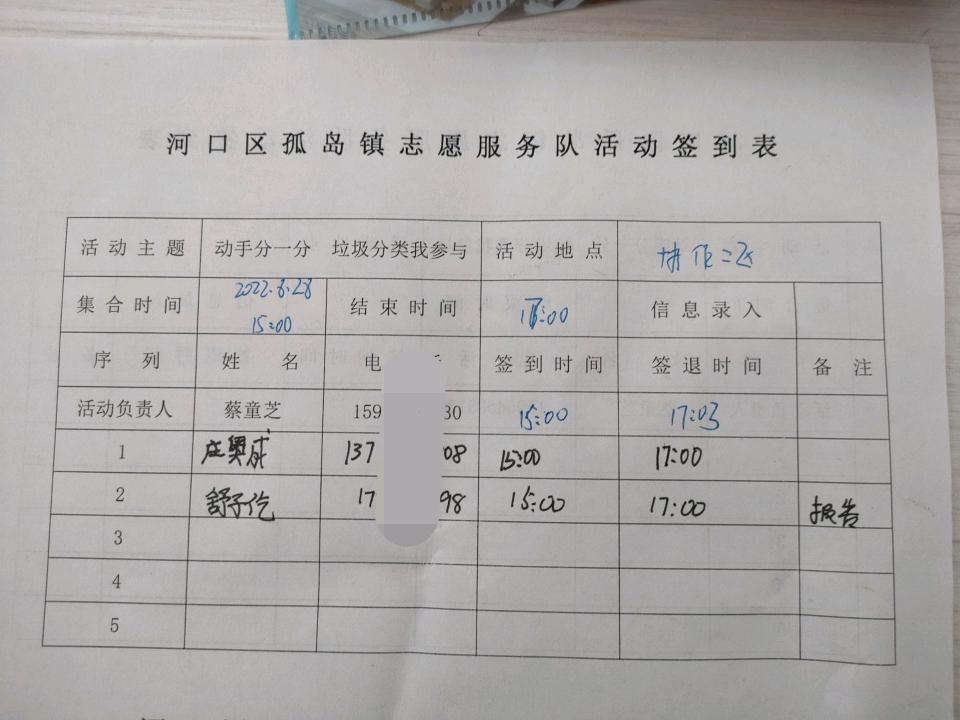 河口区孤岛镇志愿服务队活动签到表
活动主题 动手分一分 垃圾分类我参与 活动地点 协作二区
集合时间 2022.6.28 15:00 结束时间 :00 信息录入
序列 姓名 电 签到时间 签退时间 备注
活动负责人 蔡童芝 159 30 15:00 17:03
1 庄奥成 137 08 15:00 17:00
2 舒子仡 17 98 15:00 17:00 报告
3
4
5